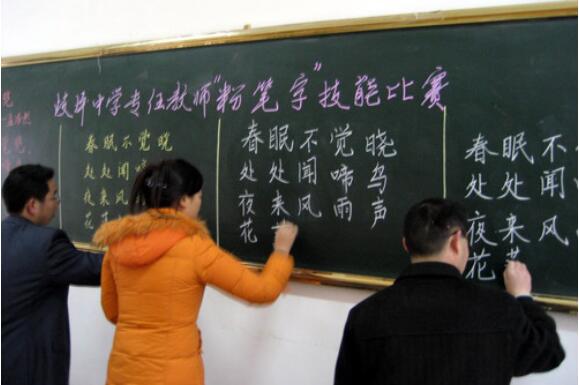 歧坪中学专任教师“粉笔字”技能比赛
晓
春眠不觉晓
处处闻啼
夜来风
花
春眠不觉晓
处处闻啼鸟
夜来风雨声
花
春眠不
处处闻
夜来风
花